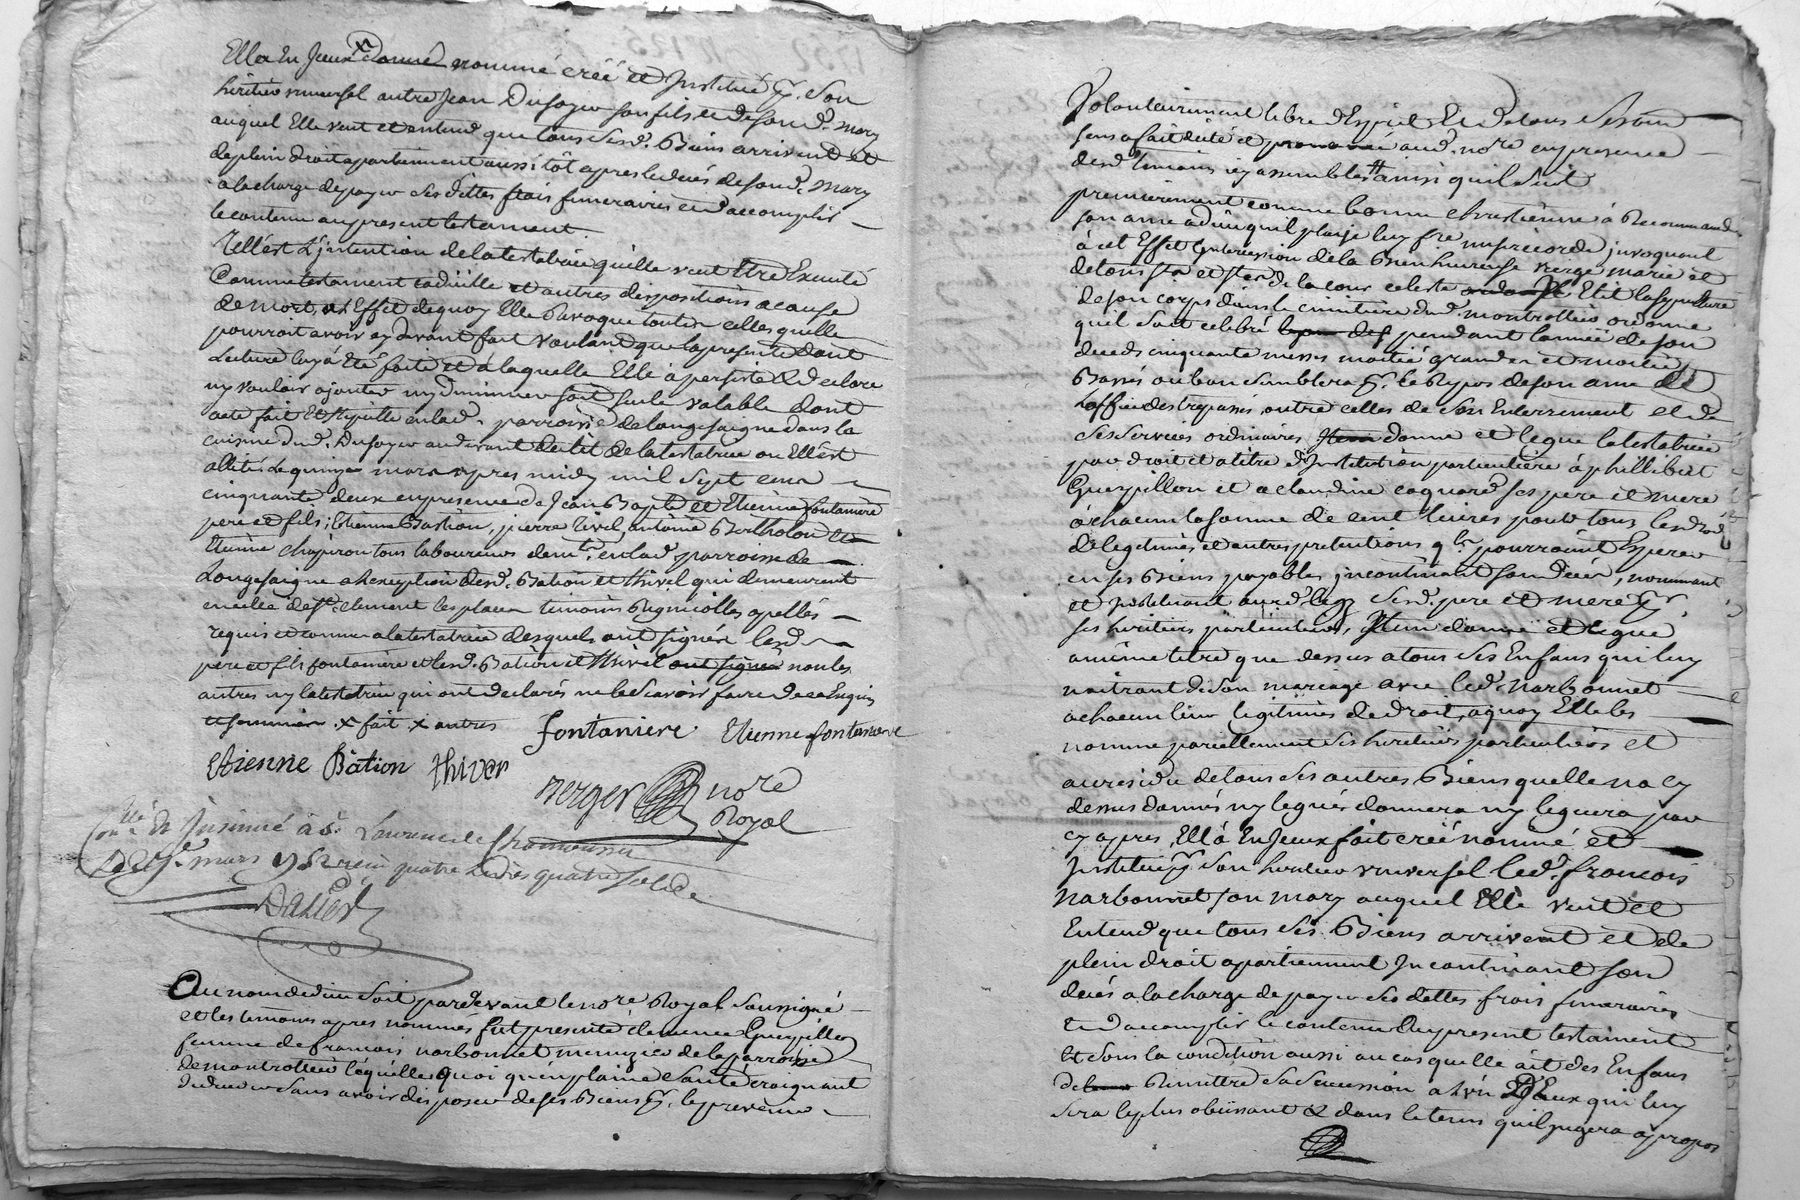 Ella En Jceux donné nommé créé et Jnstitué Son
héritier universel autre Jean Dufoyer son fils et de sond. Mary
auquel Elle veut et entend que tous sesd. Biens arrivent et
de plein droit apartiennent aussi tôt apres le deces de sond. Mary
a la charge de payer ses dettes frais funeraires et d'accomplir
le contenu au present testament.
Telle est L'jntention de la testatrice qu'elle veut Etre Executé
Comme testament codicille et autres dispositions a cause
de mort, a l'Effet de quoy Elle Revoque toutes celles quelle
pourroit avoir cy davant fait voulant que la presente dont
Lecture luy a Eté faite et a laquelle Elle a persisté et declare
ny vouloir ajouter ny diminuer soit seule valable dont
acte fait Et stipullé en lad. parroisse de Longessaigne dans la
cuisine dud. Dufoyer au devant de lit de la testatrice ou Elle est
allitée Le quinze mars apres midy mil sept cens
cinquante deux en presence de Jean Bapte et Etienne fontaniere
pere et fils, Etienne Bation, pierre thivel, antoine Bertholon et
Etienne chapiron tous laboureurs demts. en lad. parroisse de
Longesaigne a l'exception desd. Bation et thivel qui demeurent
en celle de St. clement les places temoins Regnicolles apellés
requis et connus a la testatrice desquels ont signés lesd.
pere et fils fontaniere et lesd. Bation et thivel ont signés non les
autres ny la testatrice qui ont declarés ne le sçavoir faire de ce Enquis
et sommés. x fait x autres fontaniere Etienne fontaniere
Etienne Bâtion thivel
Verger nore
Royal
Conllé et Jnsinué à St. Laurent de Chamousset
mars 1752 reçu quatre Livres quatre sols
Dalier
Au nom de dieu soit pardevant le nore Royal soussigné
et les temoins apres nommés fut presente clemence Gueypillon
femme de francois narbonnet menuizier de la parroisse
de montrottier laquelle quoi qu'en plaine santé craignant
de deceder sans avoir disposer de ses Biens
Volontairement libre d'Esprit Et de tous ses
sens a fait dicté et prononcé aud. nore en presence
desd. temoins icy assemblés ainsi qu'il suit
premierement comme bonne chrestienne à Recommandé
son ame a dieu qu'il plaise luy fre misericorde jnvoquant
à cet Effet l'jntercession de la Bienheureuse vierge marie et
de tous sts et stes de la cour celeste Elit la sepulture
de son corps dans le cimitiere dud. montrottier ordonne
qu'il soit celebré pendant l'année de son
deceds cinquante messes moitié grandes et moitié
Basses ou bon semblera le Repos de son ame
l'office des trepassés outre celles de son Enterrement et de
ses services ordinaires Jtem donne et legue la testatrice
par droit et a titre d'Jnstitution particuliere à phillibert
Gueypillon et a claudine coquard ses pere et mere
à chacun la somme de cent livres pour tous
de legitimes et autres pretentions qls. pourroient Esperer
en ses Biens payables jncontinant son deces, nommant
et jnstituant auxd. legs sesd. pere et mere
ses heritiers particuliers, Jtem donne et legue
a meme titre que dessus a tous ses Enfans qui luy
naitront de son mariage avec led. Narbonnet
a chacun leur legitimes de droit, a quoy Elle les
nomme pareillement ses heritiers particuliers et
au residu de tous ses autres Biens quelle na cy
dessus donnés ny legués donnera ny leguera par
cy apres, Ell'a En Jceux fait créé nommé et
Jnstitué son heritier universel led. francois
Narbonnet son mary auquel Elle veut et
Entend que tous ses Biens arrivent et de
plein droit apartiennent Jncontinant son
deces a la charge de payer ses dettes frais funeraires
et d'accomplir le contenu du present testament
Et sous la condition aussi au cas quelle ait des Enfans
de Remettre sa succession a l'un D'Eux qui luy
sera le plus obeissant & dans le tems qu'il jugera àpropos